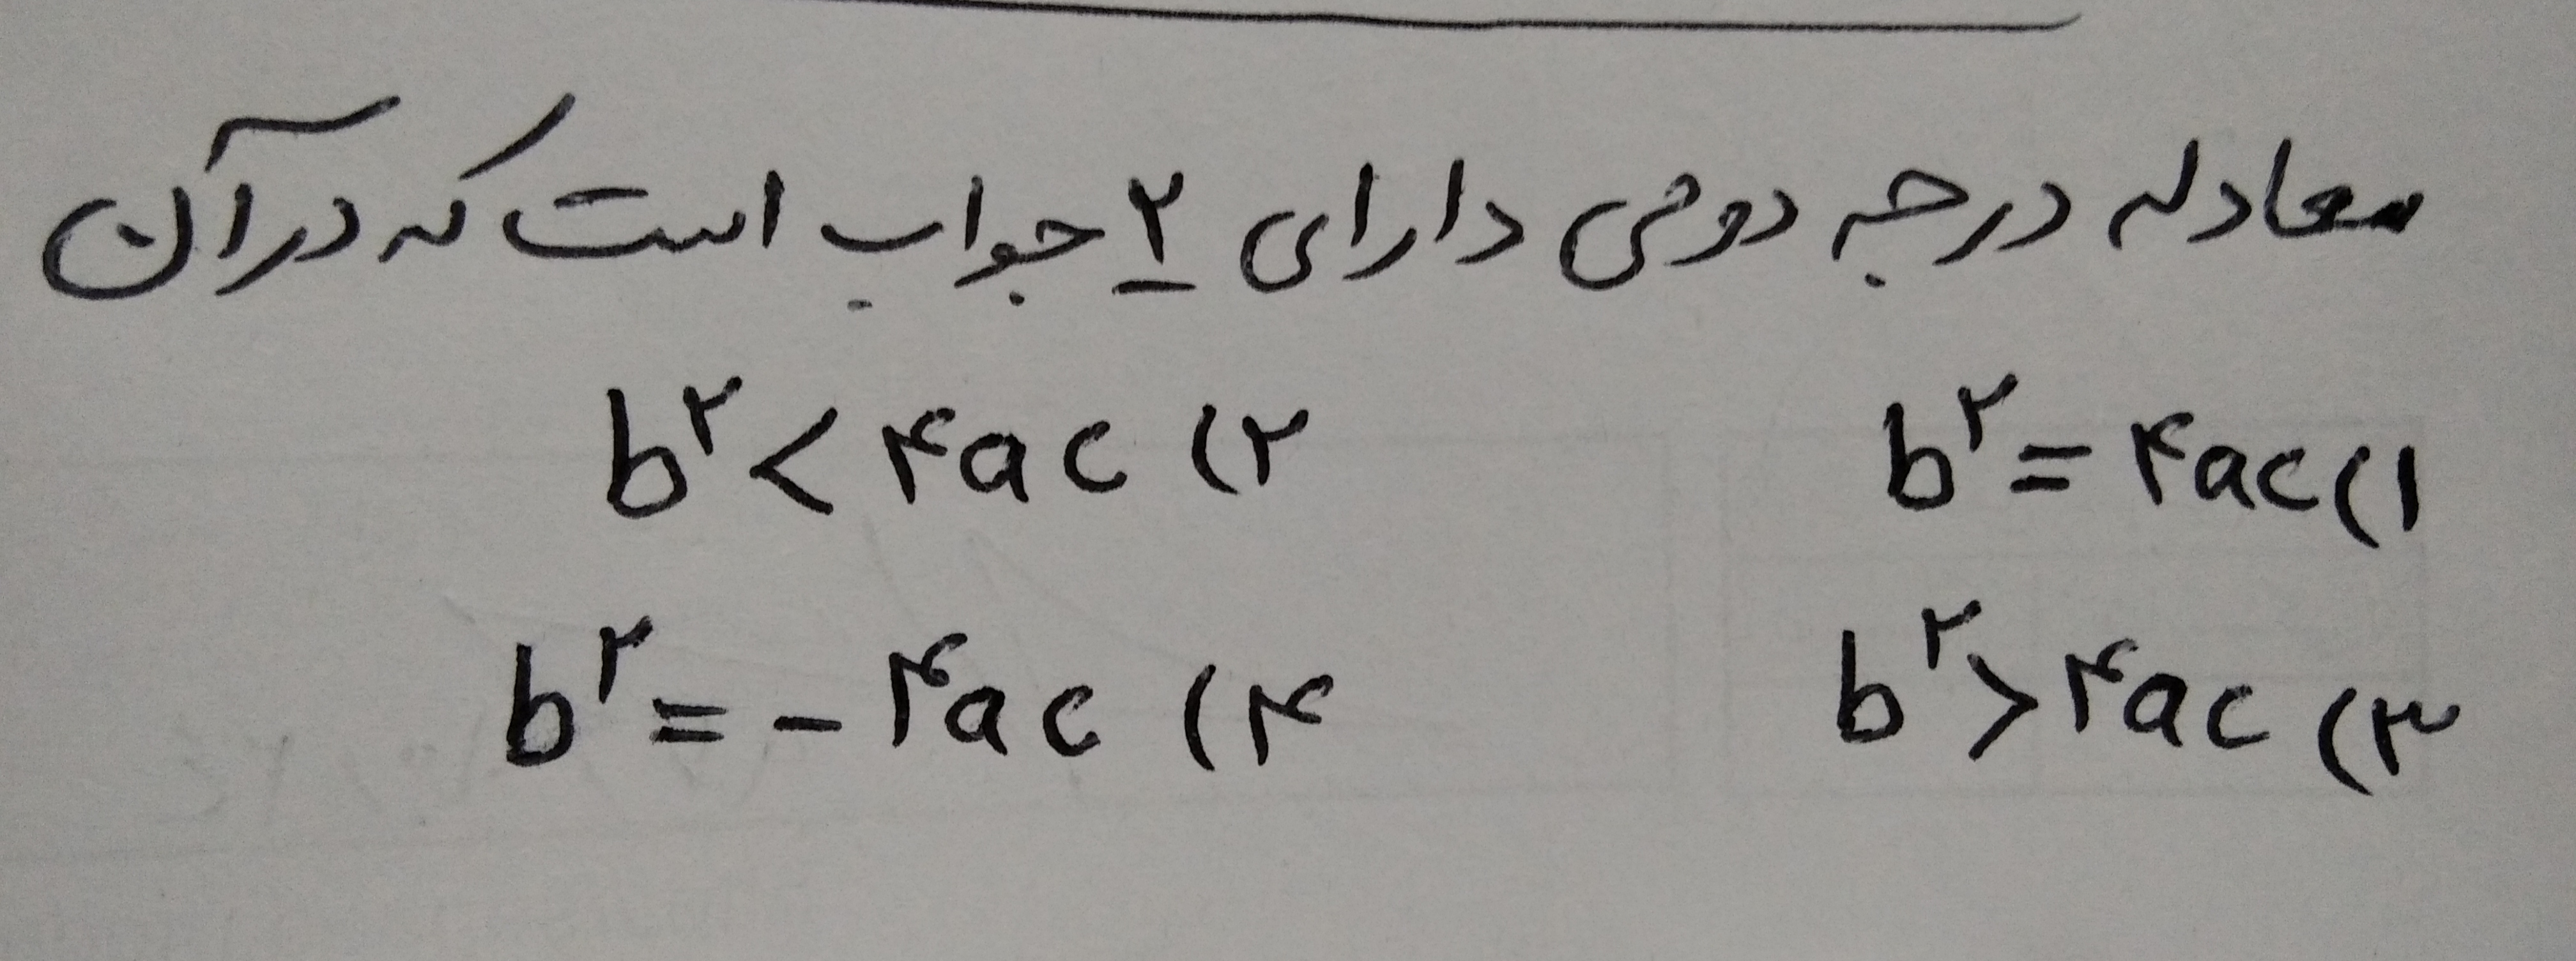 معادله درجه دومی دارای ۲ جواب است که در آن
b^۲ = ۴ac (۱ b^۲ < ۴ac (۲
b^۲ > ۴ac (۳ b^۲ = -۴ac (۴